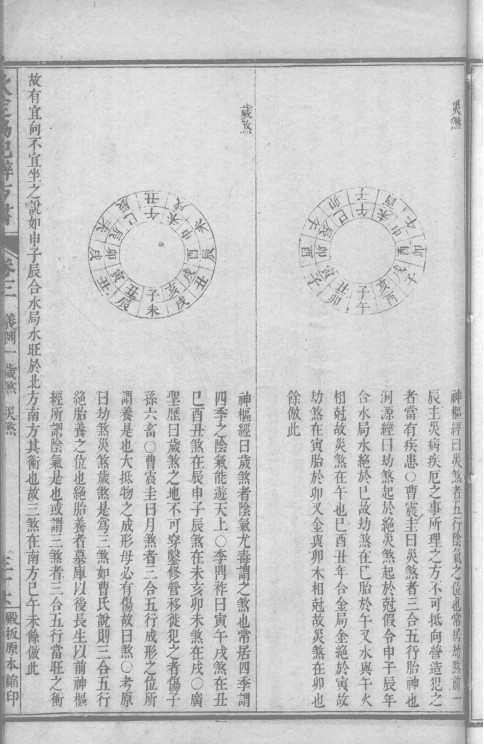 災煞
子丑寅卯辰巳午未申酉戌亥
午卯子酉午卯子酉午卯子酉
神樞經曰災煞者五行陰氣之位也常居劫煞前一
辰主災病疾厄之事所理之方不可抵向營造犯之
者當有疾患○曹震圭曰災煞者三合五行胎神也
洞源經曰劫煞起於絕災煞起於尅假令申子辰年
合水局水絕於巳故劫煞在巳胎於午又水與午火
相尅故災煞在午也巳酉丑年合金局金絕於寅故
劫煞在寅胎於卯又金與卯木相尅故災煞在卯也
餘倣此
歲煞
子丑寅卯辰巳午未申酉戌亥
未辰丑戌未辰丑戌未辰丑戌
神樞經曰歲煞者陰氣尤毒謂之煞也常居四季謂
四季之陰氣能遊天上○李鼎祚曰寅午戌煞在丑
巳酉丑煞在辰申子辰煞在未亥卯未煞在戌○廣
聖歷曰歲煞之地不可穿鑿修營移徙犯之者傷子
孫六畜○曹震圭曰月煞者三合五行成形之位所
謂養是也大抵物之成形母必有傷故曰煞○考原
曰劫煞災煞歲煞是爲三煞如曹氏說則三合五行
絕胎養之位也絕胎養者墓庫以後長生以前神樞
經所謂陰氣是也或謂三煞者三合五行當旺之衝
故有宜向不宜坐之說如申子辰合水局水旺於北方南方其衝也故三煞在南方巳午未餘倣此
卷三 義例一 歲煞 災煞
殿板原本縮印